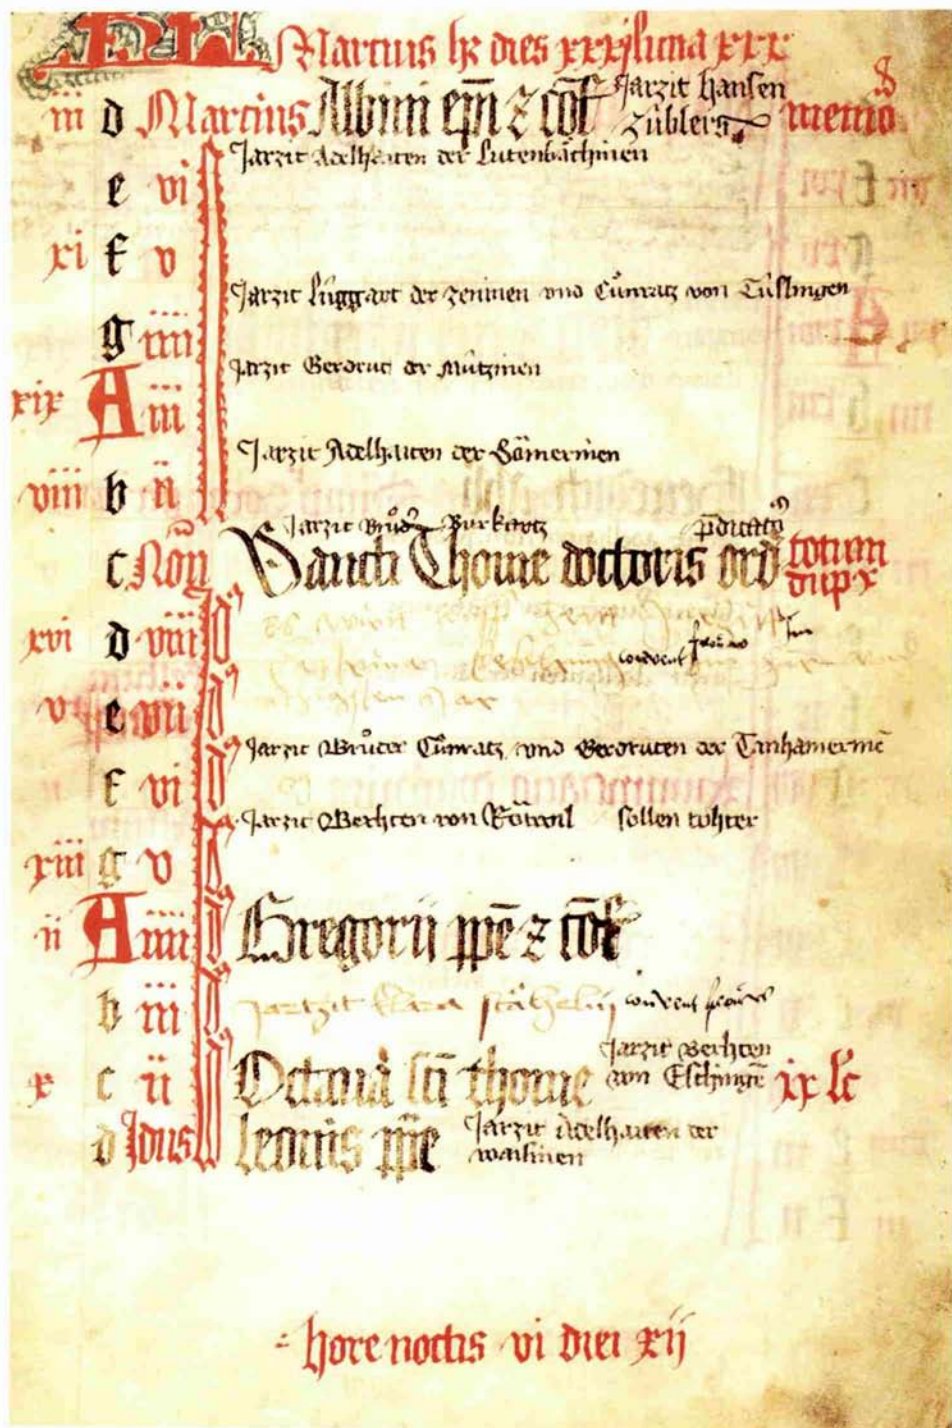 KL Marcius hꝫ dies xxxj luna xxx
iii d Marcius Albini ep̄i ⁊ cōf Jarzit hansen zúblers memo
Jarzit Adelheiten der Lutenbächinen
e vi
xi f v
Jarzit Lúggart der zeninen vnd Cůnratz von Túslingen
g iiii
Jarzit Gerdrut der Mútzinen
xix A iii
Jarzit Adelhaiten der Sämerinen
viii b ii
Jarzit Brůder Burkartz p̄dicatoꝝ
c Noń Sancti Thome doctoris ord totum dupx
xvi d viii
convent frowen
v e vii
Jarzit Brůder Cůnratz vnd Gerdruten der Tanhamerinē
f vi
Jarzit Berhten von Rotwil sollen tohter
xiii g v
ii A iiii Gregorii ꝑpe ⁊ cōf
b iii Jartzit klara stähelin convent frowen
x c ii Octaua sc̄i thome Jarzit Berhten von Eschingē ix lc
d Jdus Leonis ꝑpe Jarzit Adelhaiten der
hore noctis vi diei xij